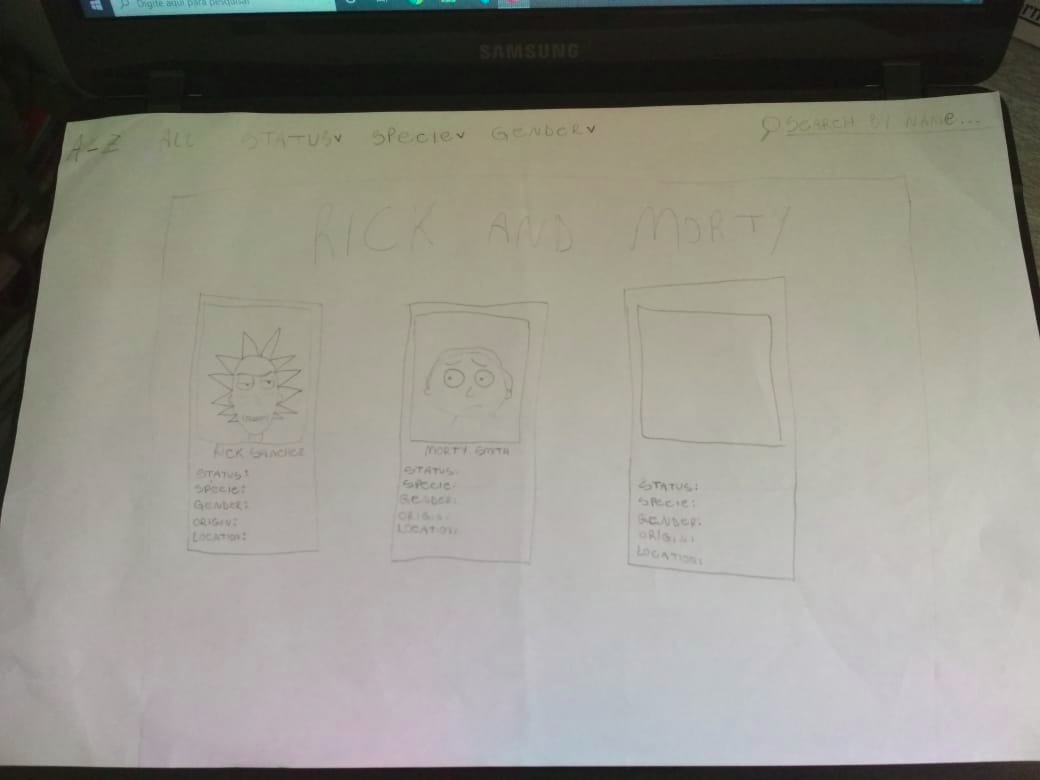 Digite aqui para pesquisar
SAMSUNG
A-Z ALL STATUS SPECIE GENDER SEARCH BY NAME...
RICK AND MORTY
RICK SANCHEZ
STATUS:
SPECIE:
GENDER:
ORIGIN:
LOCATION:
MORTY SMITH
STATUS:
SPECIE:
GENDER:
ORIGIN:
LOCATION:
STATUS:
SPECIE:
GENDER:
ORIGIN:
LOCATION: